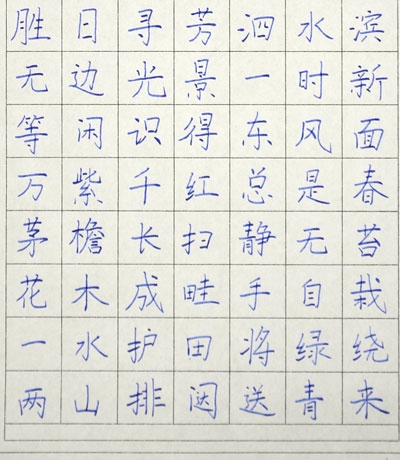 胜日寻芳泗水滨
无边光景一时新
等闲识得东风面
万紫千红总是春
茅檐长扫静无苔
花木成畦手自栽
一水护田将绿绕
两山排闼送青来